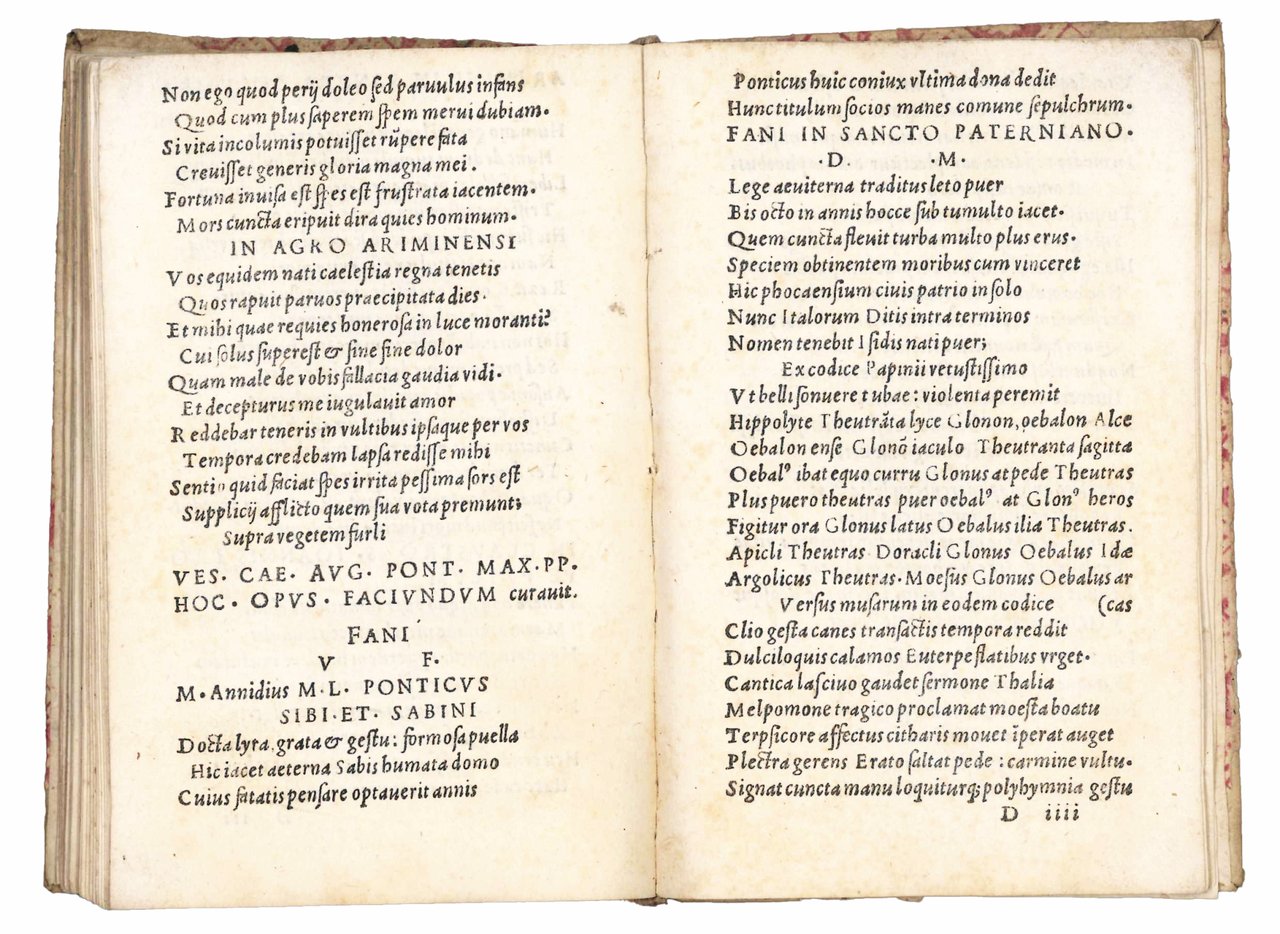 Non ego quod perij doleo sed paruulus infans
Quod cum plus saperem spem merui dubiam.
Si vita incolumis potuisset rūpere fata
Crevisset generis gloria magna mei.
Fortuna inuisa est spes est frustrata iacentem.
Mors cuncta eripuit dira quies hominum.
IN AGRO ARIMINENSI
Vos equidem nati caelestia regna tenetis
Quos rapuit paruos praecipitata dies.
Et mihi quae requies honerosa in luce moranti?
Cui solus superest & sine fine dolor
Quam male de vobis fallacia gaudia vidi.
Et decepturus me iugulauit amor
Reddebar teneris in vultibus ipsaque per vos
Tempora credebam lapsa redisse mihi
Sentio quid faciat spes irrita pessima sors est
Supplicij afflicto quem sua vota premunt;
Supra vegetem furli
VES. CAE. AVG. PONT. MAX. PP.
HOC. OPVS. FACIVNDVM curauit.
FANI
V F.
M. Annidius M. L. PONTICVS
SIBI. ET. SABINI
Docta lyra, grata & gestu: formosa puella
Hic iacet aeterna Sabis humata domo
Cuius fatatis pensare optauerit annis
Ponticus huic coniux vltima dona dedit
Hunc titulum socios manes comune sepulchrum.
FANI IN SANCTO PATERNIANO.
.D. .M.
Lege aeuiterna traditus leto puer
Bis octo in annis hocce sub tumulto iacet.
Quem cuncta flevit turba multo plus erus.
Speciem obtinentem moribus cum vinceret
Hic phocaensium ciuis patrio in solo
Nunc Italorum Ditis intra terminos
Nomen tenebit Isidis nati puer;
Ex codice Papinii vetustissimo
Vt belli sonuere tubae: violenta peremit
Hippolyte Theutrāta lyce Glonon, oebalon Alce
Oebalon ense Glonō iaculo Theutranta sagitta
Oebalꝰ ibat equo curru Glonus at pede Theutras
Plus puero theutras puer oebalꝰ at Glonꝰ heros
Figitur ora Glonus latus Oebalus ilia Theutras.
Apicli Theutras Doracli Glonus Oebalus Idæ
Argolicus Theutras. Moesus Glonus Oebalus ar
Versus musarum in eodem codice (cas
Clio gesta canes transactis tempora reddit
Dulciloquis calamos Euterpe flatibus vrget.
Cantica lasciuo gaudet sermone Thalia
Melpomone tragico proclamat moesta boatu
Terpsicore affectus citharis mouet īperat auget
Plectra gerens Erato saltat pede: carmine vultu.
Signat cuncta manu loquiturq; polyhymnia gestu
D iiii